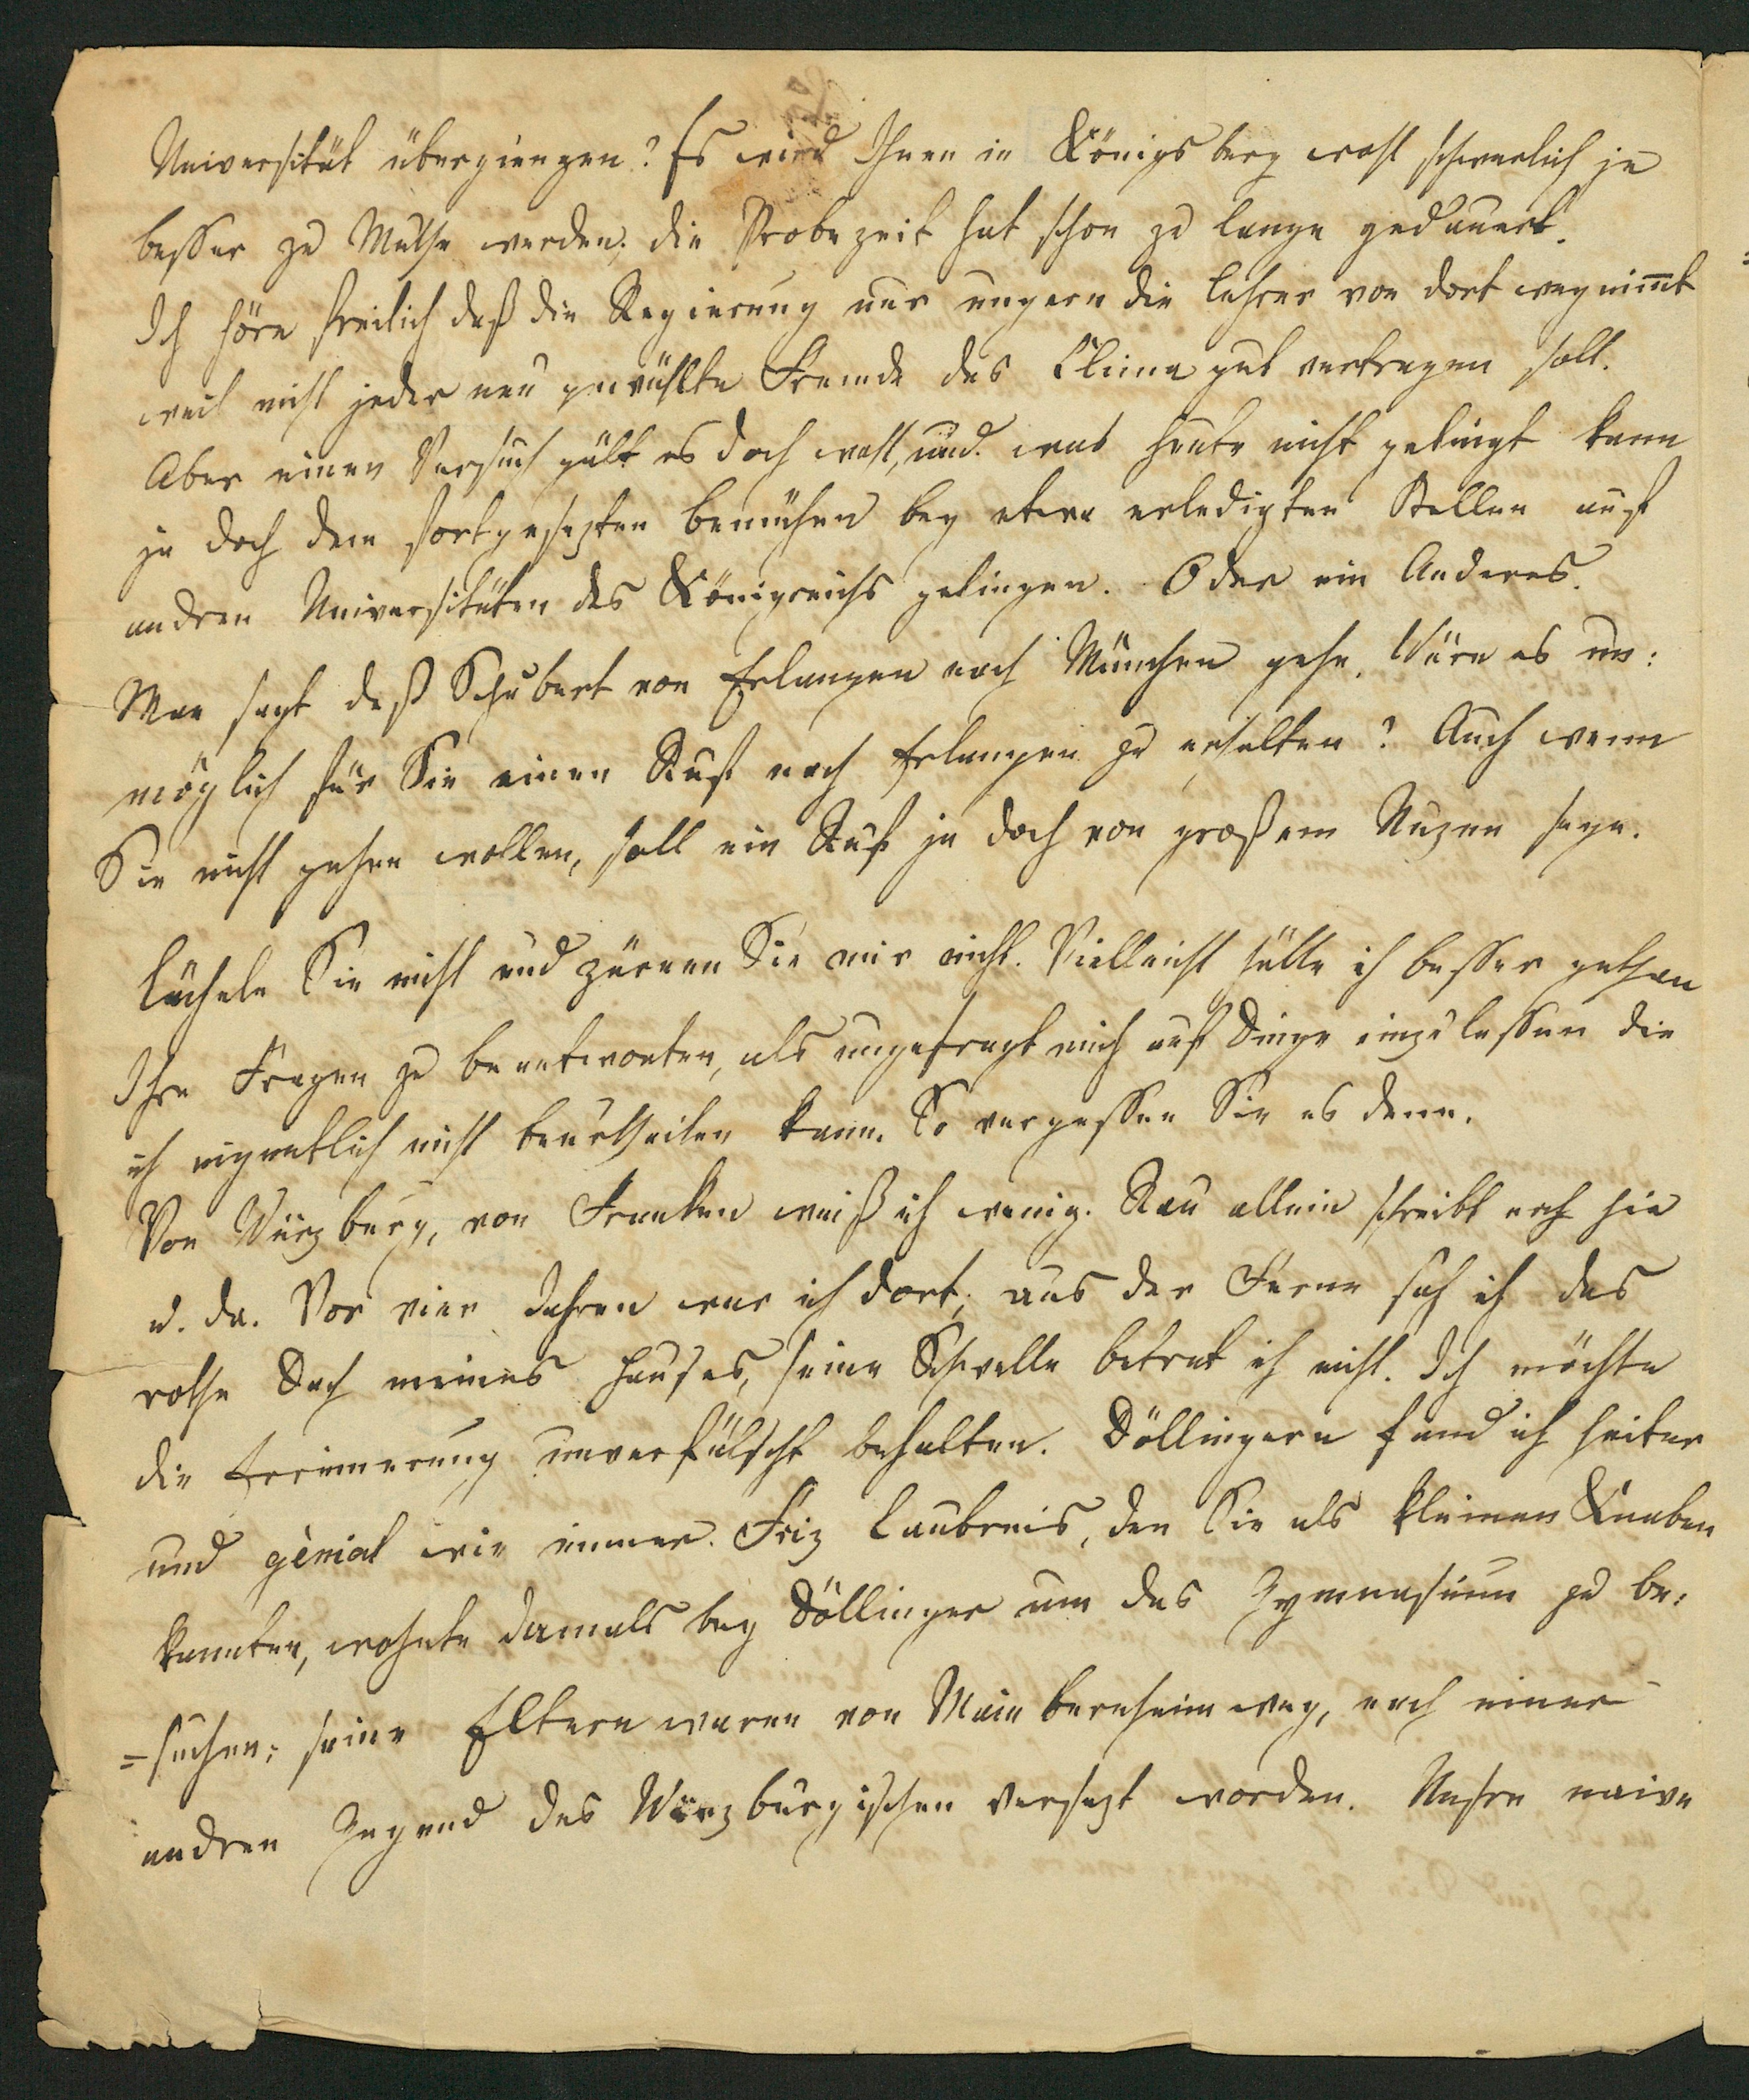 Universität übergiengen? Es wird Ihnen in Königsberg wohl schwerlich je
besser zu Muthe werden; die Probezeit hat schon zu lange gedauert.
Ich höre freilich daß die Regierung nur ungern die Lehrer von dort wegnim̅t
weil nicht jeder neu gewählte Fremde das Clima gut vertragen soll.
Aber einen Versuch gält es doch wohl, und was heute nicht gelingt kann
ja doch dem fortgesezten Bemühen bey etwa erledigten Stellen auf
andren Universitäten des Königreichs gelingen. Oder ein Anderes.
Man sagt daß Schubert von Erlangen nach München gehe. Wäre es un:
möglich für Sie einen Ruf nach Erlangen zu erhalten? Auch wenn
Sie nicht gehen wollen, soll ein Ruf ja doch von großem Nuzen seyn.
Lächeln Sie nicht und zürnen Sie mir nicht. Vielleicht hätte ich besser gethan
Ihre Fragen zu beantworten, als ungefragt mich auf Dinge einzulassen die
ich eigentlich nicht beurtheilen kann. So vergessen Sie es denn.
Von Würzburg, von Franken weiß ich wenig. Rau allein schreibt noch hie
u. da. Vor vier Jahren war ich dort; aus der Ferne sah ich das
rothe Dach meines Hauses, seine Schwelle betrat ich nicht. Ich möchte
die Erinnerung unverfälscht behalten. Döllingern fand ich heiter
und génial wie immer. Friz Laubreis, den Sie als kleinen Knaben
kannten, wohnte damals bey Döllinger um das Gymnasium zu be:
=suchen; seine Eltern waren von Mainbernheim weg, nach einer
andren Gegend des Würzburgischen versezt worden. Unsre naive